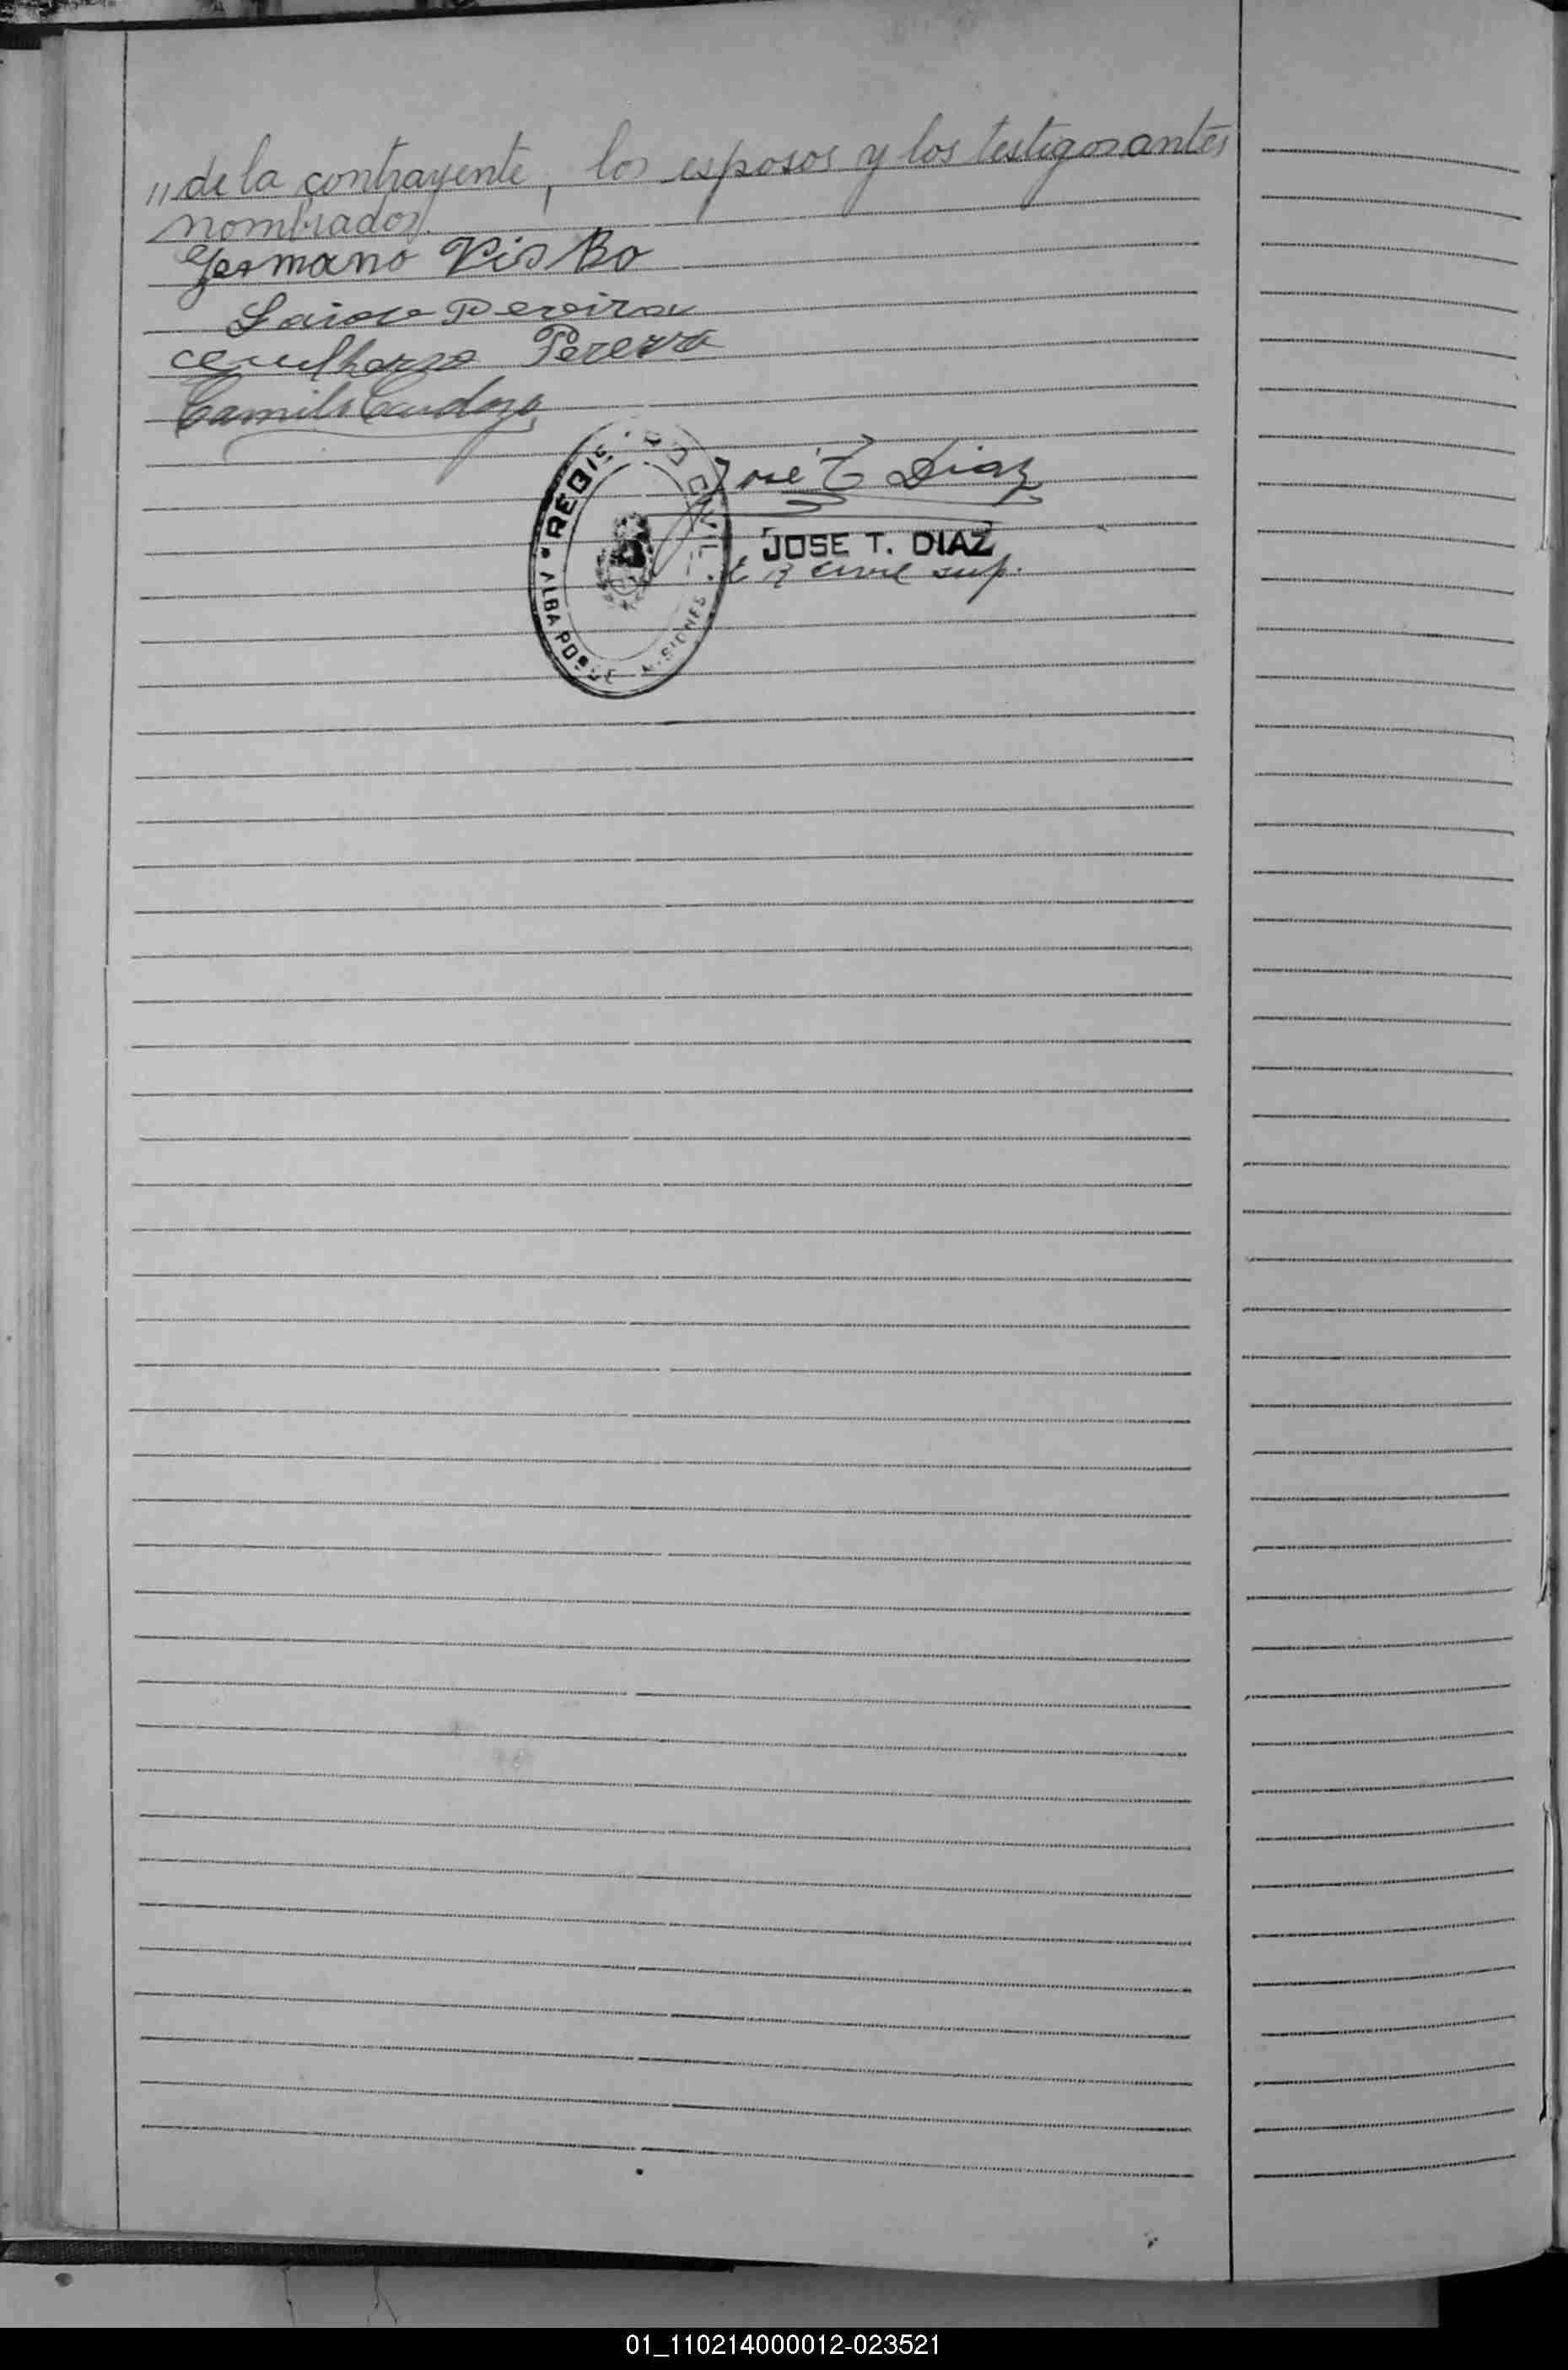 "de la contrayente, los esposos y los testigos antes
nombrados.
Germano Pis Bo
Pereira
Pereira
Camilo Cardozo
José T Diaz
JOSE T. DIAZ
civil sup.
REGISTRO CIVIL
ALBA POSSE MISIONES
01_110214000012-023521